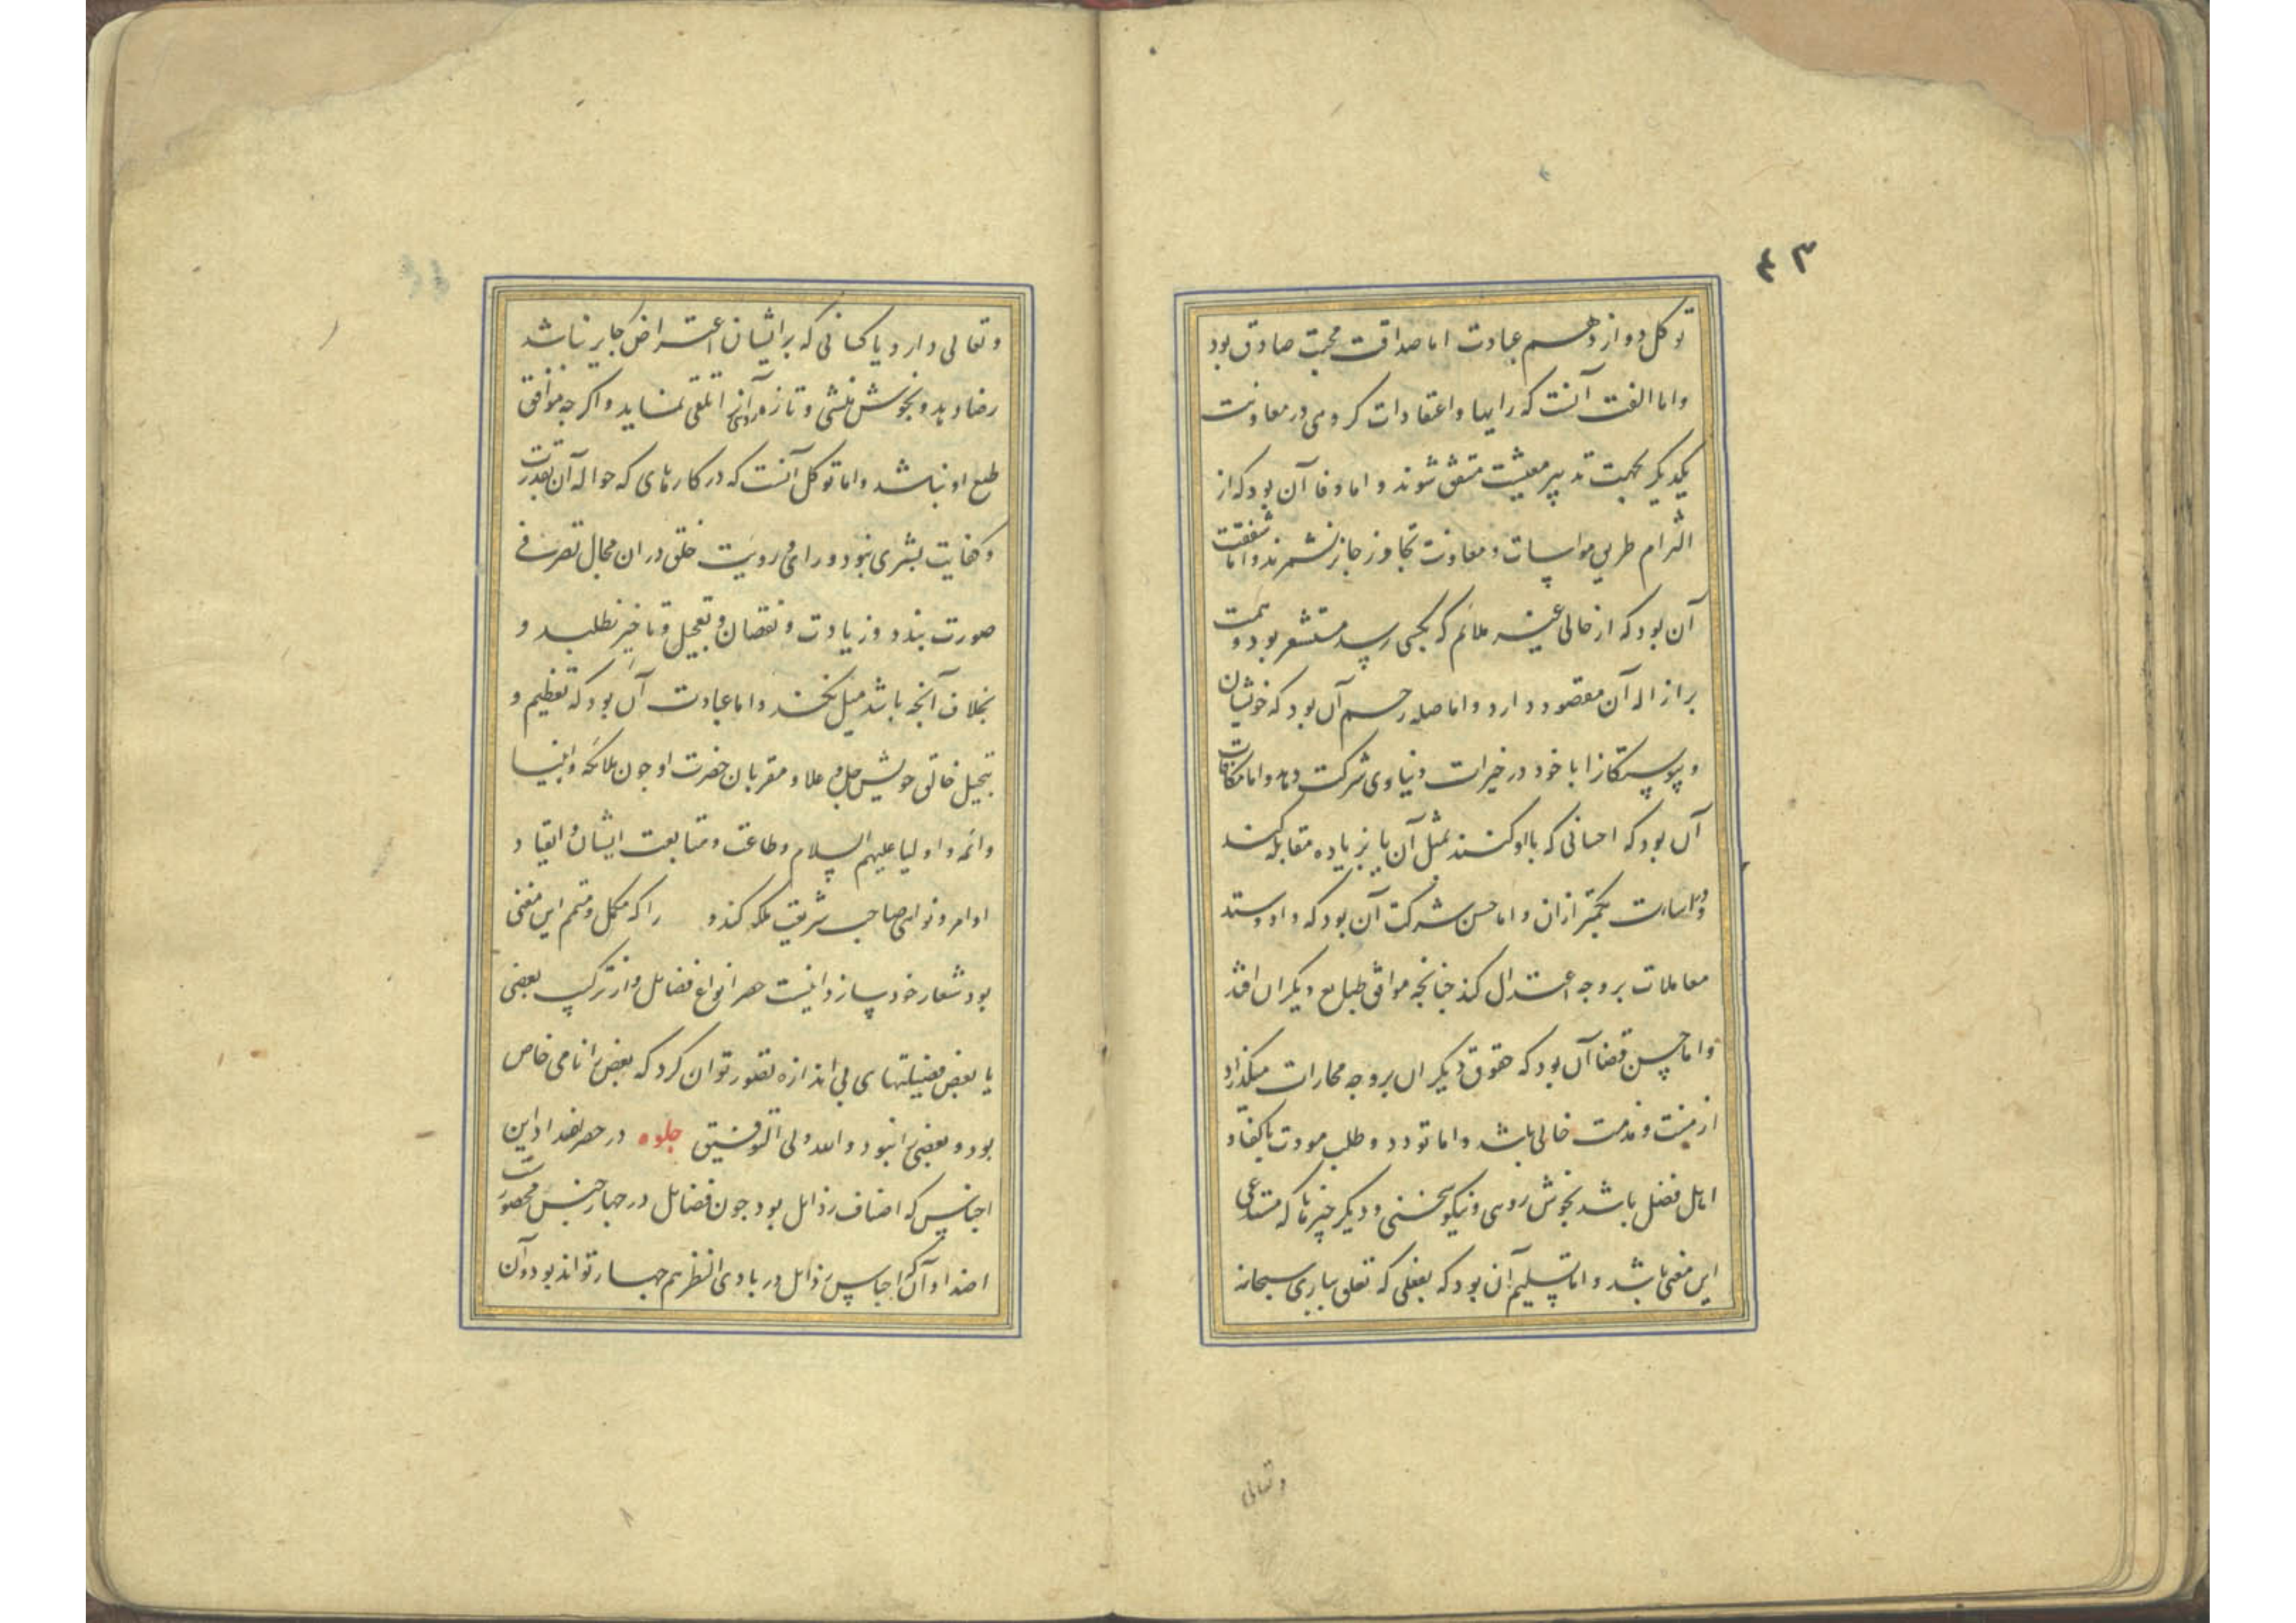 ۴۳
توکل دوازدهم عبادت اما صداقت محبت صادق بود
واما الفت آنست که رایها و اعتقادات کروهی در معاونت
یکدیکر بجهت تدبیر معیشت متفق شوند و اما وفا آن بود که از
التزام طریق مواسات و معاونت تجاوز جایز نشمرند و اما شفقت
آن بود که از حالی غیر ملائم که بکسی رسد مستشعر بود و همت
بر ازاله آن مقصود دارد و اما صله رحم آن بود که خویشان
و پیوستکانرا با خود در خیرات دنیاوی شرکت دهد و اما مکافات
آن بود که احسانی که با او کنند بمثل آن یا بزیاده مقابله کند
و در اساءت بکمتر ازان و اما حسن شرکت آن بود که داد و ستد
معاملات بر وجه اعتدال کند چنانچه موافق طبایع دیکران افتد
و اما حسن قضا آن بود که حقوق دیکران بر وجه مجازات میکذارد
از منت و ندامت خالی باشد و اما تودد و طلب مودت باکفا و
اهل فضل باشد بخوش رویی و نیکو سخنی و دیکر چیزها که مستدعی
این معنی باشد و اما تسلیم آن بود که بفعلی که تعلق بباری سبحانه
وتعالی
وتعالی دارد یا کسانی که بر ایشان اعتراض جایز نباشد
رضا دهد و بخوش منشی و تازه رویی آنرا تلقی نماید و اکرچه موافق
طبع او نباشد و اما توکل آنست که در کارهای که حواله آن بقدرت
و کفایت بشری نبود و رای و رویت خلق دران مجال تصرف
صورت نبندد و زیادت و نقصان و تعجیل و تاخیر نطلبد و
بخلاف آنچه باشد میل نکند و اما عبادت آن بود که تعظیم و
تبجیل خالق خویش جل و علا و مقربان حضرت او چون ملائکه و انبیا
و ائمه و اولیا علیهم السلام و طاعت و متابعت ایشان و انقیاد
اوامر و نواهی صاحب شریعت ملکه کند و را که مکمل و متمم این معنی
بود شعار خود سازد اینست حصر انواع فضایل و از ترکیب بعضی
با بعض فضیلتهای بی اندازه تصور توان کرد که بعض را نامی خاص
بود و بعضی را نبود و الله ولی التوفیق جلوه در حصر اضداد این
اجناس که اصناف رذایل بود چون فضایل در چهار جنس محصور است
اضداد آن که اجناس رذایل در بادی النظر هم چهار تواند بود و آن